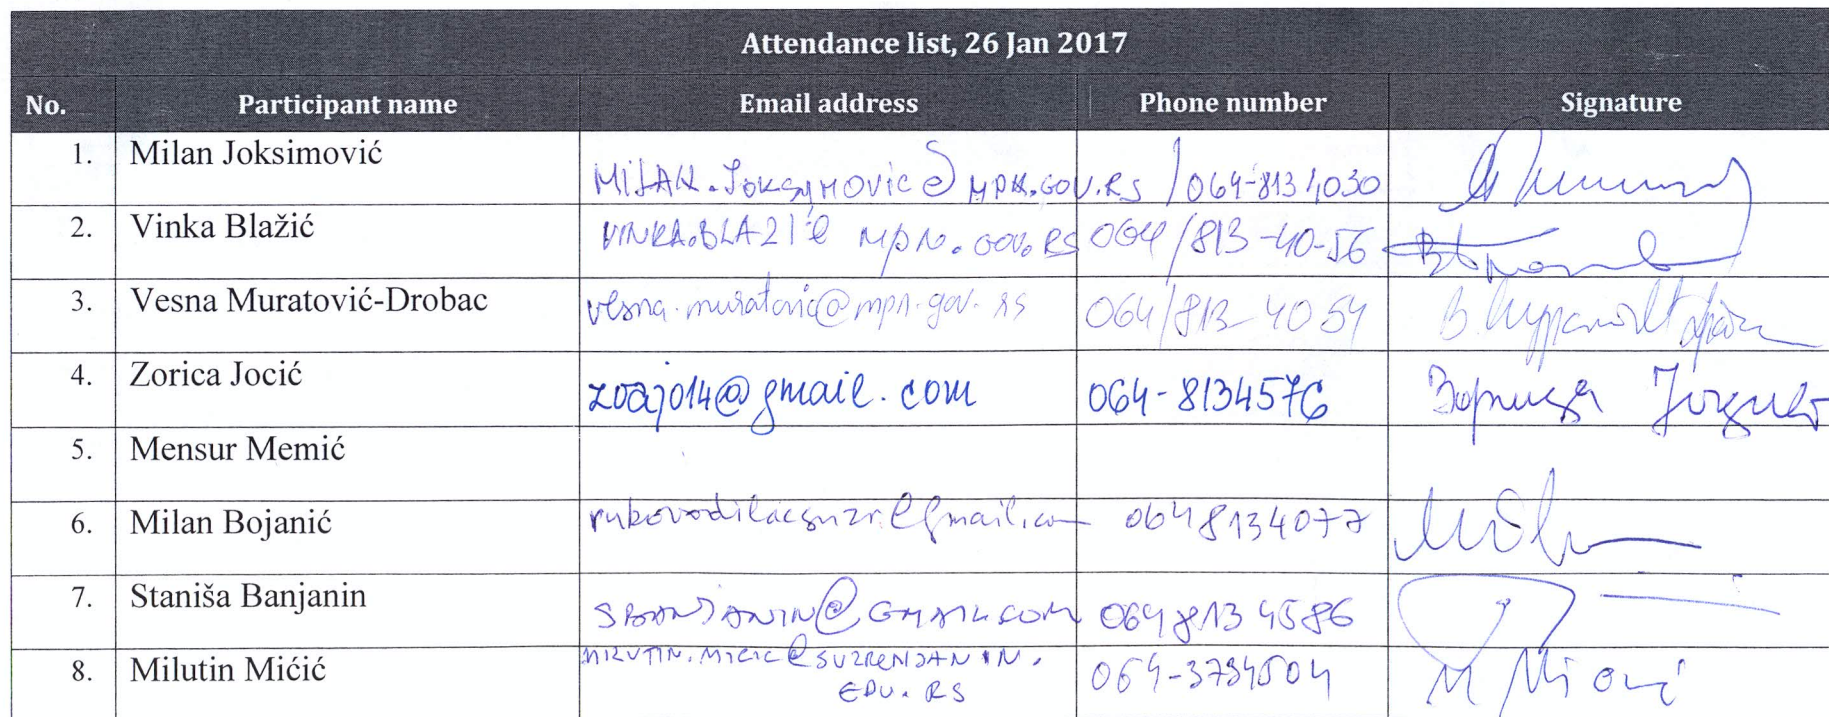 Attendance list, 26 Jan 2017
No. Participant name Email address Phone number Signature
1. Milan Joksimović MILAN.JOKSIMOVIC@MPN.GOV.RS /064-8134030
2. Vinka Blažić VINKA.BLAZIC@MPN.GOV.RS 064/813-40-56
3. Vesna Muratović-Drobac vesna.muratovic@mpn.gov.rs 064/813-4054
4. Zorica Jocić zoajo14@gmail.com 064-8134576 Зорица Јоцић
5. Mensur Memić
6. Milan Bojanić rukovodilacsuzr@gmail.com 0648134077
7. Staniša Banjanin SBANJANIN@GMAIL.COM 064 813 4586
8. Milutin Mićić MILUTIN.MICIC@SUZRENJANIN.
EDU.RS 064-3734504